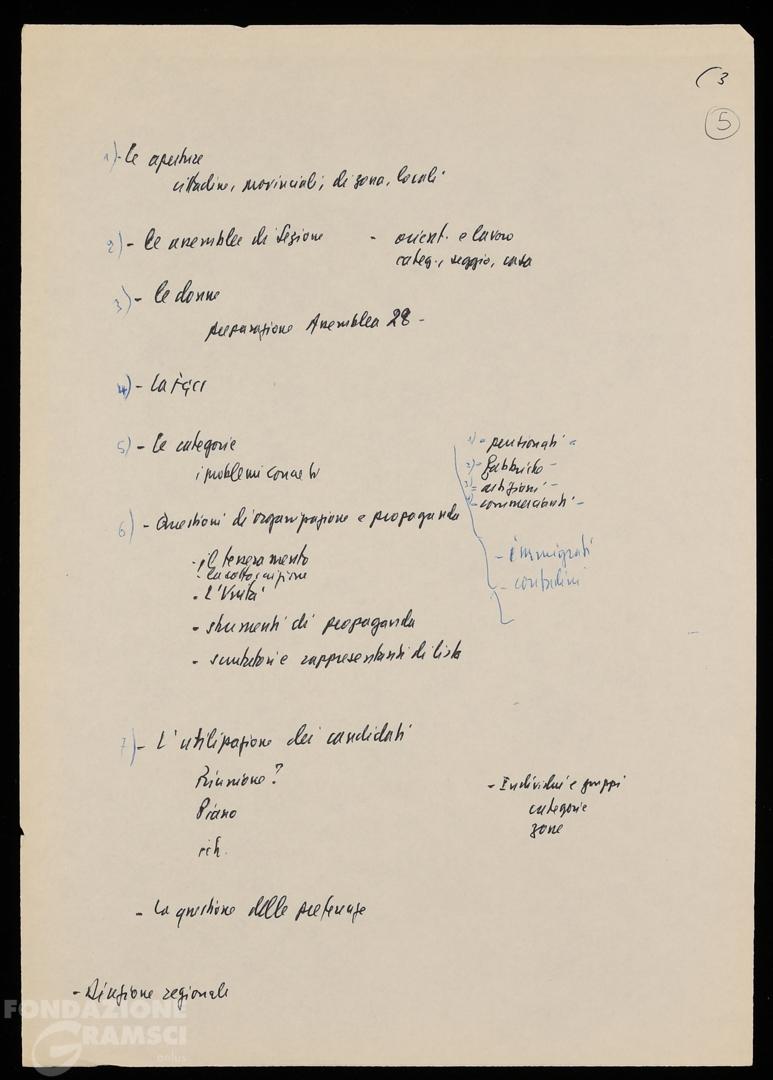 ( 3
5
1) - Le aperture
cittadine, provinciali, di zona, locali
2) - Le assemblee di Sezione - orient. e lavoro
categ., seggio, casa
3) - Le donne
preparazione Assemblea 28 -
4) - La FGCI
5) - Le categorie
i problemi concreti
1) - pensionati -
2) - fabbriche -
3) - artigiani -
4) - commercianti -
- immigrati
- contadini
6) - Questioni di organizzazione e propaganda
- il tesseramento
- la sottoscrizione
- L'Unità
- strumenti di propaganda
- scrutatori e rappresentanti di lista
7) - L'utilizzazione dei candidati
Riunione?
Piano
- Individui e gruppi
categorie
zone
- La questione delle preferenze
- Direzione regionale
FONDAZIONE
GRAMSCI
onlus